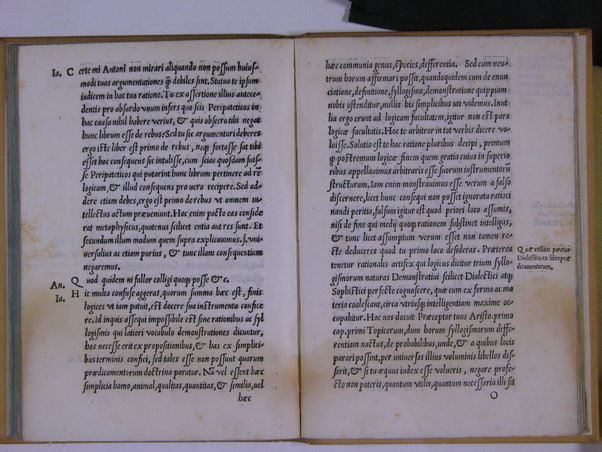 Ia. Certe mi Antoni non mirari aliquando non possum huius-
modi tuas argumentationes ꝗ̃ debiles sint. Statuo te ipsum
iudicem in hac tua ratione. Tu ex assertione illius antece-
dentis pro absurdo vnum infers quo scis Peripateticos in
hac causa nihil habere verius, & quis obsecro tibi negat
hunc librum esse de rebus? Sed tu sic argumentari deberes
ergo iste liber est primo de rebus, neq; fortasse sat tibi
esset hoc consequens sic intulisse, cum scias quosdam fuis-
se Peripateticos qui putarint hunc librum pertinere ad re
logicam, & illud consequens pro vero recipere. Sed ad-
dere etiam debes, ergo est primo de rebus vt omnem in-
tellectus actum præueniunt. Hoc enim pacto eas conside
rat metaphysicus, quatenus scilicet entia aut res sunt. Et
secundum illum modum quem supra explicauimus. s. vni-
uersalius ac etiam purius, & tunc illam consecutionem
negaremus.
An. Quod quidem ni fallor colligi quoq; posse & c.
Ia. Hic multa confuse aggeras, quorum summa hæc est, finis
logices vt iam patuit, est docere sua instrumenta confice
re. Id inquis assequi impossibile est sine rationibus ac syl
logismis qui latiori vocabulo demonstrationes dicuntur,
hos necesse erit ex propositionibus, & has ex simplici-
bus terminis confici, sed tales esse non possunt quarum
prædicamentorum doctrina paratur. Nã vel essent hæc
simplicia homo, animal, qualitas, quantitas, & similia, uel
hæc
hæc communia genus, species, differentia. Sed cum neu-
trum horum affirmari posse, quandoquidem cum de enun
ciatione, definitione, syllogismo, demonstratione quippiam
nobis ostenditur, nullis his simplicibus uti videmus. Inuti
lia ergo erunt ad logicam facultatem, igitur non est pars
logicæ facultatis. Hoc te arbitror in tot verbis dicere vo-
luisse. Solutio est te hac ratione pluribus decipi, primum
ꝗ postremum logicæ finem quem gratia cuius in superio
ribus appellauimus arbitraris esse suorum instrumentorũ
structuram. Iam enim monstrauimus esse verum a falso
discernere, licet hunc consequi non posset ignorata ratioci
nandi peritia, falsum igitur est quod priori loco assumis,
nisi de fine qui medij quoq; rationem subintrat intelligas,
& tunc licet assumptum verum esset non tamen re-
cte deduceres quod tu primo loco desideras. Præterea
tenetur rationalis artifex qui logicus dicitur trium syllo-
gismorum naturas Demonstratiui scilicet Dialectici atq;
Sophistici perfecte cognoscere, quæ cum ex forma ac ma
teria coalescant, circa vtriusq; intelligentiam maxime oc
cupabitur. Hoc nos docuit Præceptor tuus Aristo. primo
cap. primi Topicorum, dum horum syllogismorum diffe-
rentiam nactus, de probabilibus, unde, & a quibus locis
parari possint, per uniuersos illius voluminis libellos dis-
serit, & si tu æquus iudex esse volueris, negare profe-
cto non poteris, quantum vtilis, quantum necessaria illi sit
O
Quæ vtilitas paretur
Dialectico ex libro præ
dicamentorum.